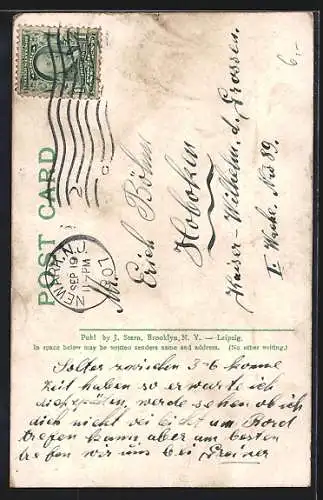 POST CARD
NEWARK, N.J.
SEP 19
11-PM
1907
Mr. Erich Böhm
Hoboken
Kaiser-Wilhelm. d. Grossen.
II Wache. No 89.
6,-
Publ by J. Stern, Brooklyn, N. Y. — Leipzig.
In space below may be written senders name and address. (No other writing.)
Solter zwischen 3-6 konne
Zeit haben so erwarte ich
dich werde sehen ob ich
dich nicht bei leicht am Bord
trefen kann, aber am besten
trefen wir uns bei Greiner